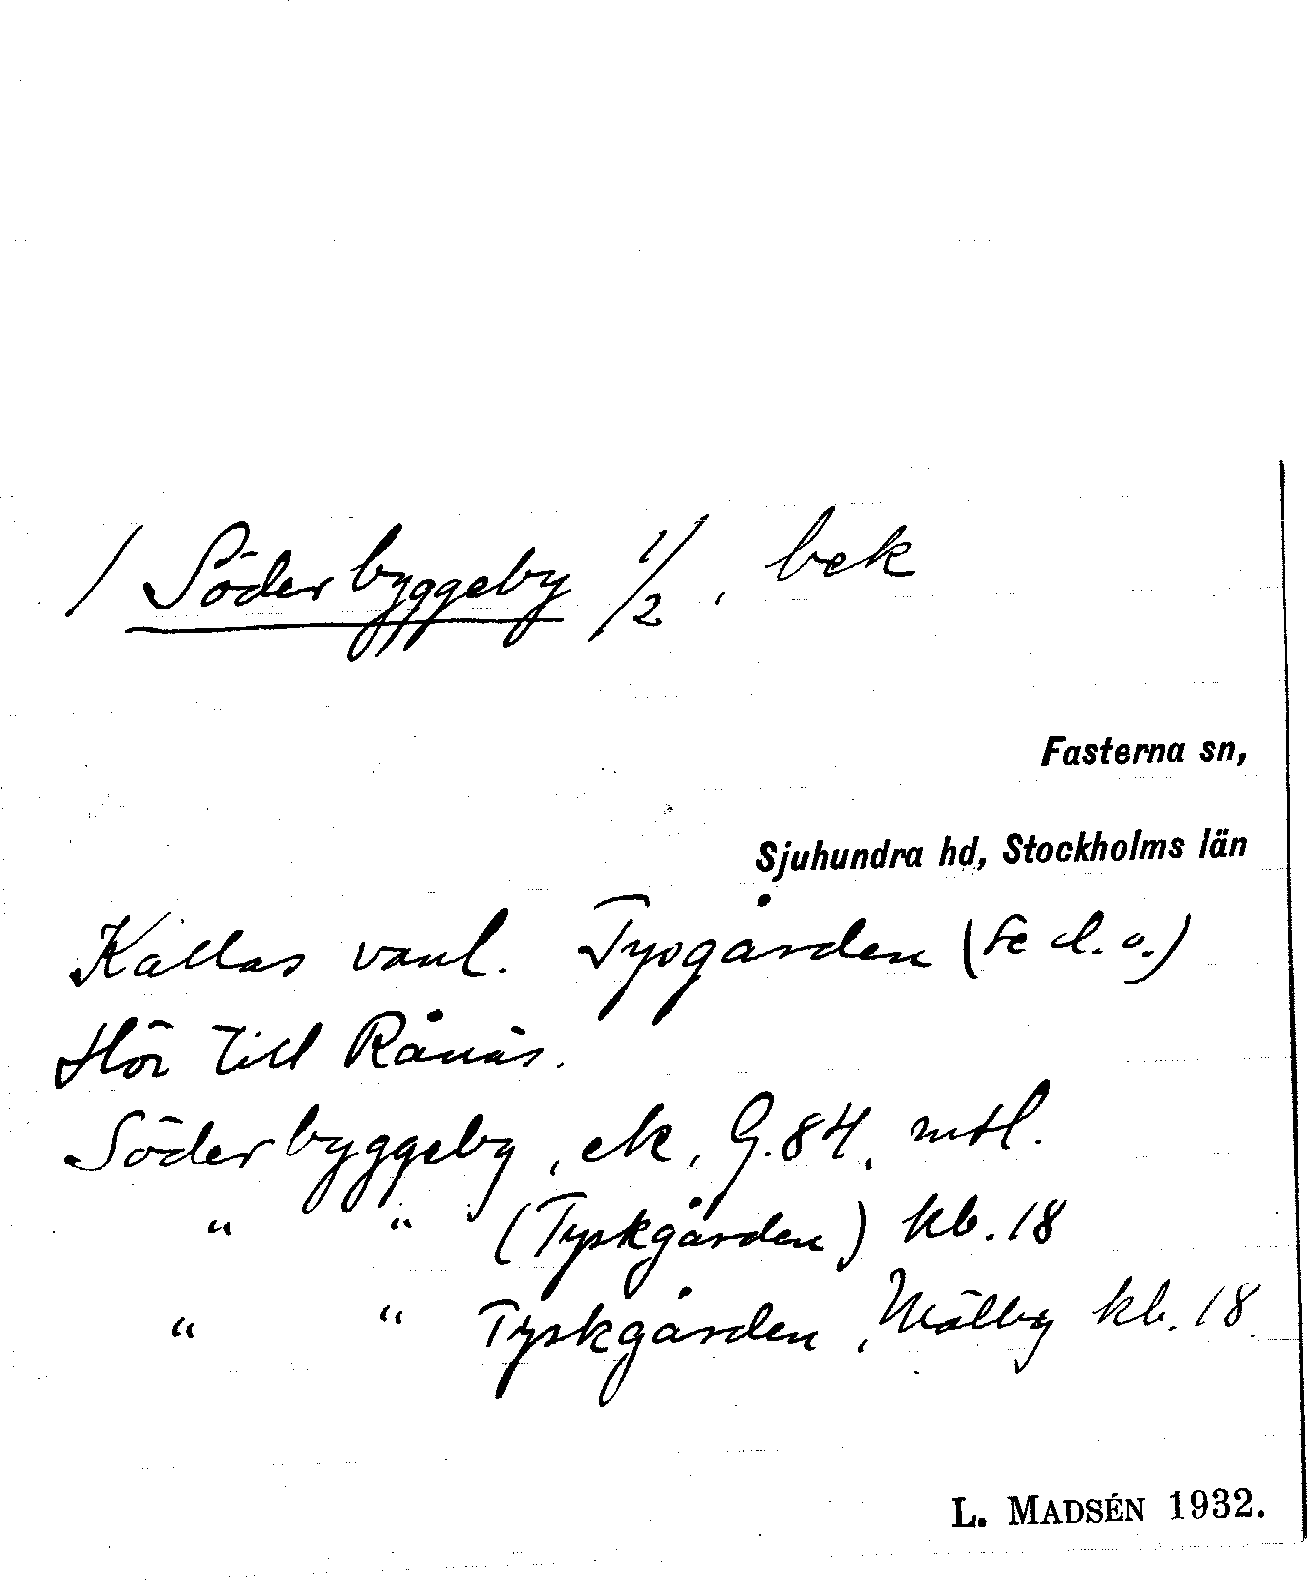 / Söderbyggeby 1/2, bek
Fasterna sn,
Sjuhundra hd, Stockholms län
Kallas vanl. Tysgården (se d. o.)
Hör till Rånäs.
Söderbyggeby, ek, G. 84, mtl.
" " (Tyskgården) kb. 18
" " Tyskgården, Mälby kb. 18
L. MADSÉN 1932.